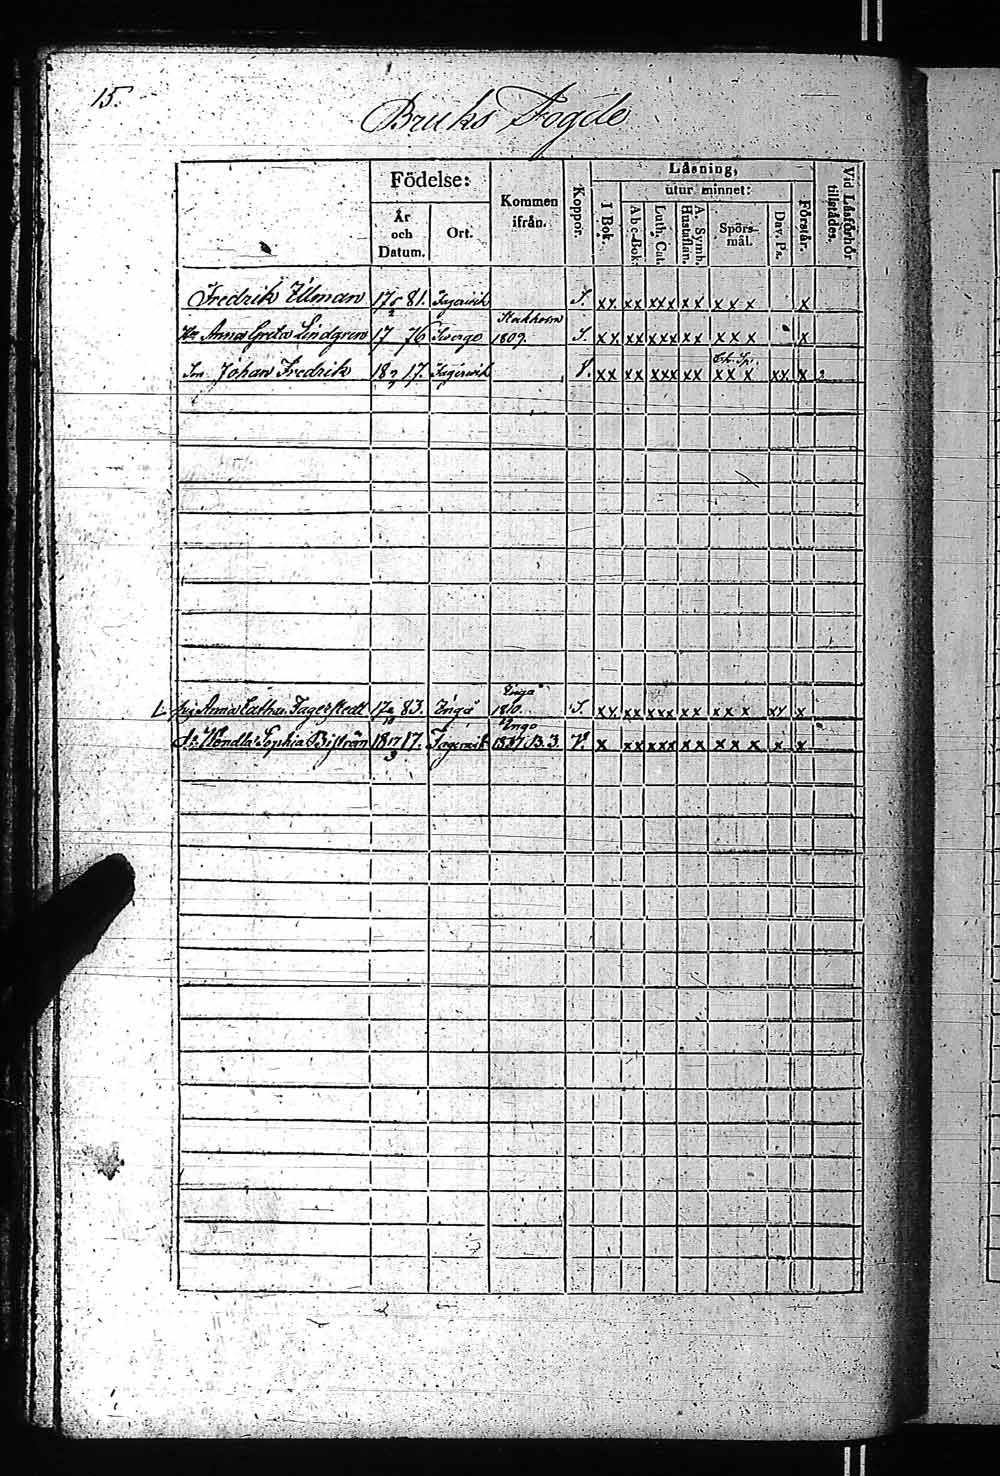 15.
Bruks Fogde
Födelse: Kommen ifrån. Koppor. Läsning, Vid Läsförhör tillstädes.
År och Datum. Ort. I Bok. utur minnet: Förstår.
A b c-Bok. Luth. Cat. A. Symb. Hustaflan. Spörsmål. Dav. Ps.
Fredrik Ullman 17 5/2 81. Fagervik S. xx xx xxx xx xxx x
Stockholm
Anna Greta Lindgren 17 76 Sverge 1809. S. xx xx xxx xx xxx x
Son Johan Fredrik 18 17. Fagervik xx xx xxx xx xxx xx x
Ingå
Anna Cathar. Fagerstedt 17 83. Ingå 1810. S. xx xx xxx xx xxx xx x
Ingo
Wendla Sophia Biström 18 17/3 17. Fagervik 1837.13.3. V. x xx xxx xx xxx x x